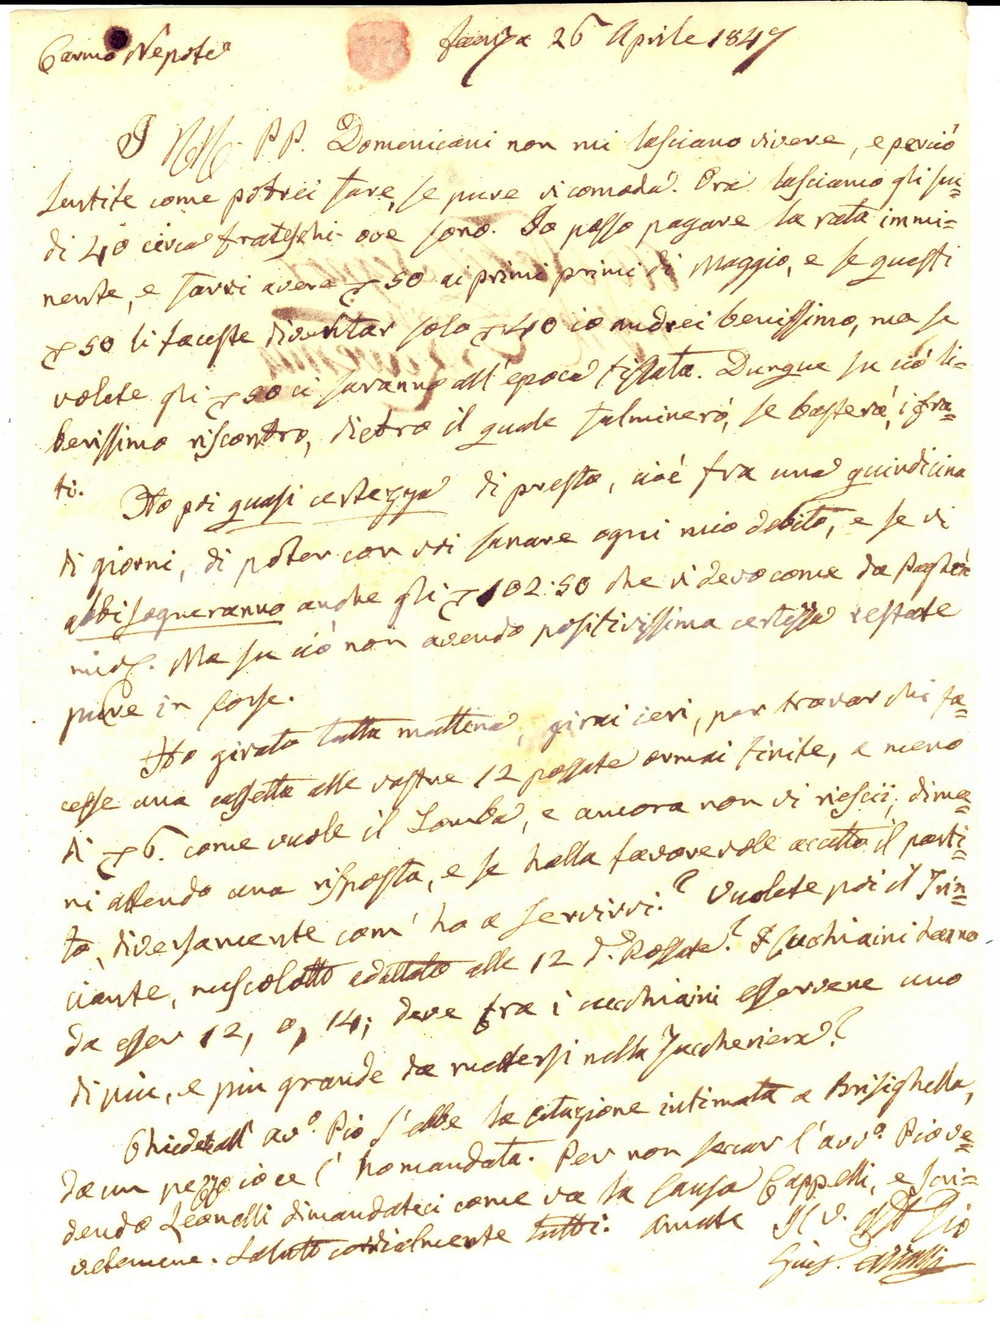 Carmo Nepote
Faenza 26 Aprile 1847
I PP. Domenicani non mi lasciano vivere, e perciò
sentite come potrei fare, se pure vi comoda. Ora lasciamo gli scu=
di 40 circa frateschi ove sono. Io posso pagare la rata immi=
nente, e farvi avere 50 ai primi primi di Maggio, e se questi
50 li faceste diventar solo 40 io andrei benissimo, ma se
volete gli 50 ci saranno all'epoca fissata. Dunque su ciò li=
berissimo riscontro, dietro il quale fulminerò, se basterà, i fra=
ti.
Ho poi quasi certezza di presto, cioè fra una quindicina
di giorni, di poter con voi sanare ogni mio debito, e se vi
abbisogneranno anche gli 102:50 che vi devo come da
Ma su ciò non avendo positivissima certezza restate
pure in forse.
Ho girato tutta mattina, girai ieri, per trovar chi fa=
cesse una cassetta alle vostre 12 possate ormai finite, a meno
di 6. come vuole il Lomba, e ancora non vi riescii, doma=
ni attendo una risposta, e se halla favorevole accetto il parti=
to, diversamente com' ho a servirvi? Volete poi il Trin=
ciante, nuscolotto adattato alle 12 d.e Possate? I cucchiaini hanno
da esser 12, o, 14; deve fra i cucchiaini esservene uno
di più, e più grande da mettersi nella Zuccheriera?
Chiedete all' av.o Pio s'ebbe la citazione intimata a Brisighella,
da un pezzo ce l' ho mandata. Per non seccar l'avv.o Pio ve=
dendo Leonelli dimandateci come va la causa Cappelli, e scri=
vetemene. Saluto cordialmente tutti. Amate Il V. Zio
Gius.